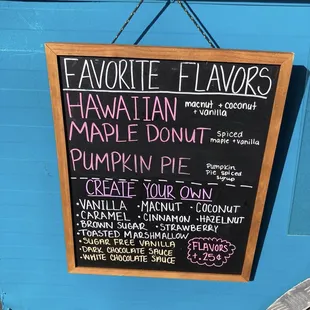 FAVORITE FLAVORS
HAWAIIAN macnut + coconut
+ vanilla
MAPLE DONUT spiced
maple + vanilla
PUMPKIN PIE Pumpkin
Pie spiced
syrup
CREATE YOUR OWN
VANILLA · MACNUT · COCONUT
CARAMEL · CINNAMON · HAZELNUT
BROWN SUGAR · STRAWBERRY
· TOASTED MARSHMALLOW
· SUGAR FREE VANILLA
· DARK CHOCOLATE SAUCE
· WHITE CHOCOLATE SAUCE
FLAVORS
+.25¢